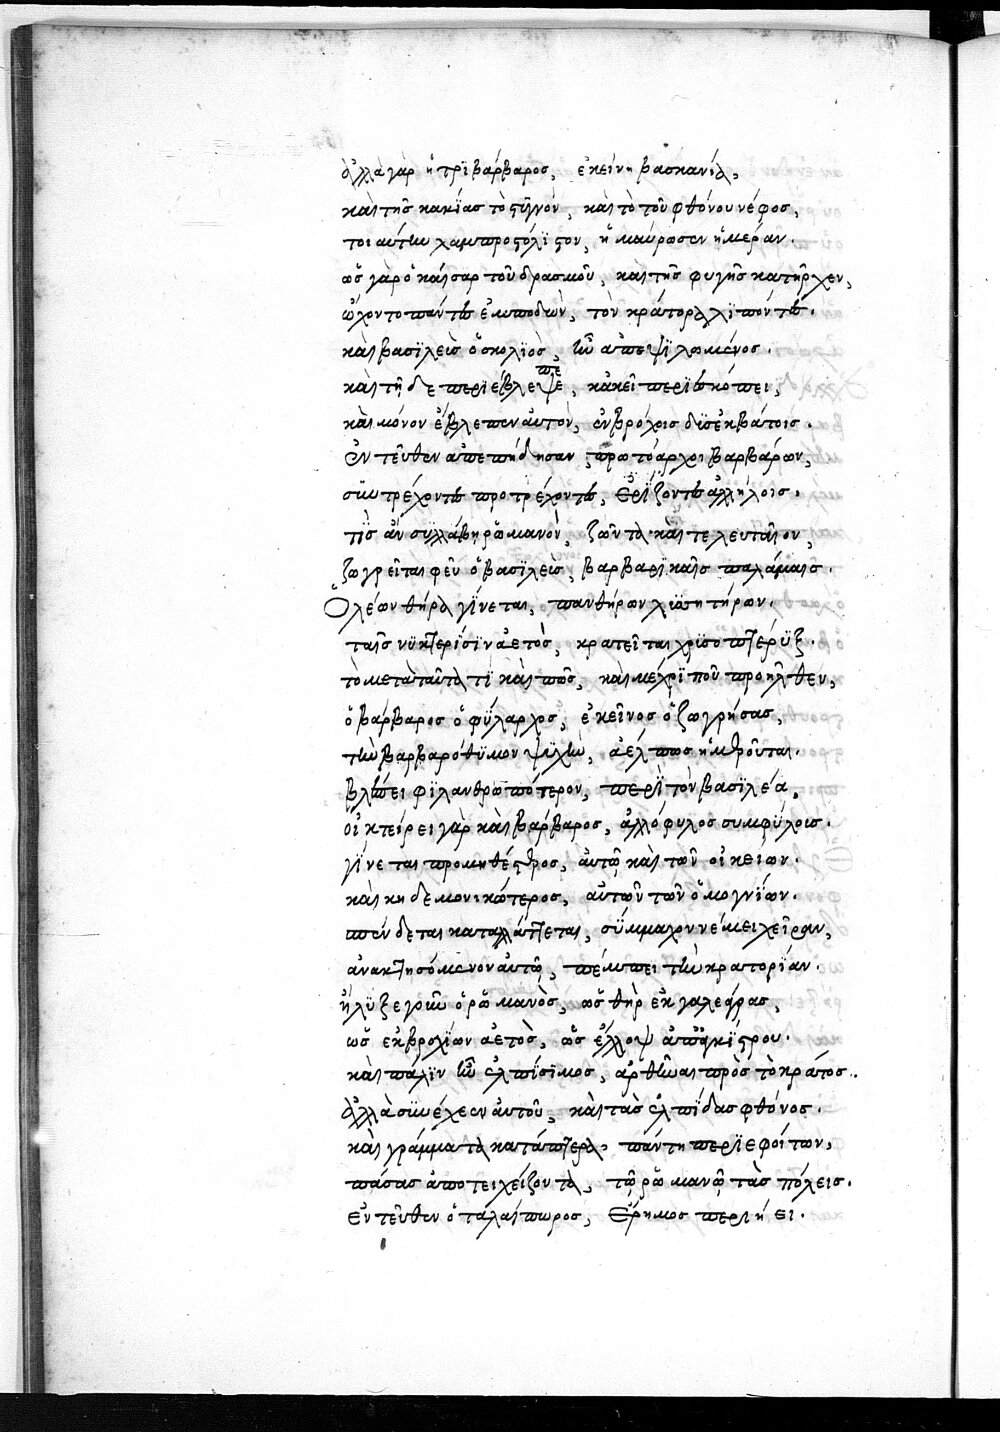 ἀλλὰ γὰρ ἡ τρϊβάρβαρος, ἐκείνη βασκανία,
καὶ τῆς κακίας τὸ στυγνὸν, καὶ τὸ τοῦ φθόνου νέφος,
τοιαύτην λαμπροστόλϊστον, ἠμαύρωσεν ἡμέραν.
ὡς γὰρ ὁ καίσαρ τοῦ δρασμοῦ, καὶ τῆς φυγῆς κατῆρχεν,
ὤχοντο πάντες ἐμποδὼν, τὸν κράτορα λϊπόντες.
καὶ βασιλεὺς ὁ σκολϊὸς, ἦν ἀπεψϊλωμένος.
καὶ τῇδε περιέβλεψέπε, κἀκεῖ περϊεσκόπει,
καὶ μόνον ἔβλεπεν αὐτὸν, ἐν βρόχοις δυσεκβάτοις.
ἐντεῦθεν ἀπεπήδησαν, πρωτόαρχοι βαρβάρων,
συντρέχοντες προτρέχοντες, ἐρΐζοντες ἀλλήλοις.
τίς ἂν συλλάβῃ ῥωμανὸν, ζῶντα καὶ τελευταῖον,
ζωγρεῖται φεῦ ὁ βασιλεὺς, βαρβαρϊκαῖς παλάμαις.
Ὁ λέων θήρα γΐνεται, πανθήρων λυσσητήρων.
ταῖς νυκτερίσϊν ἀετὸς, κρατεῖται χρυσοπτέρυξ.
τὸ μετὰ ταῦτα τί καὶ πῶς, καὶ μέχρϊ ποῦ προῆλθεν,
ὁ βάρβαρος ὁ φύλαρχος, ἐκεῖνος ὁ ζωγρήσας,
τὴν βαρβαρόθυμον ψυχὴν, ἀέλπως ἡμεροῦται.
βλέπει φϊλανθρωπότερον, περὶ τὸν βασϊλέα,
οἰκτείρει γὰρ καὶ βάρβαρος, ἀλλόφυλος συμφύλοις.
γΐνεται προμηθέστερος, αὐτῶ καὶ τῶν οἰκείων.
καὶ κηδεμονικώτερος, αὐτῶν τῶν ὁμογνΐων.
σπένδεται καταλλάττεται, σύμμαχον νέμει χεῖραν,
ἀνακτησόμενον αὐτῶ, πέμπει τὴν κρατορΐαν.
ἤλυξε γοῦν ὁ ῥωμανὸς, ὡς θὴρ ἐκ γαλεάγρας,
ὡς ἐκ βροχΐων ἀετὸς, ὡς ἔλλοψ ἀπ' ἀγκΐστρου.
καὶ πάλϊν ἦν ἐλπΐσϊμος, ἀρθῆναι πρὸς τὸ κράτος.
ἀλλὰ συνέχεεν αὐτοῦ, καὶ τὰς ἐλπΐδας φθόνος.
καὶ γράμματα κατάπτερα, πάντη περϊεφοίτων,
πάσας ἀποτειχΐζοντα, τῶ ῥωμανῶ τὰς πόλεις.
ἐντεῦθεν ὁ ταλαίπωρος, ἔρημος περιήει.